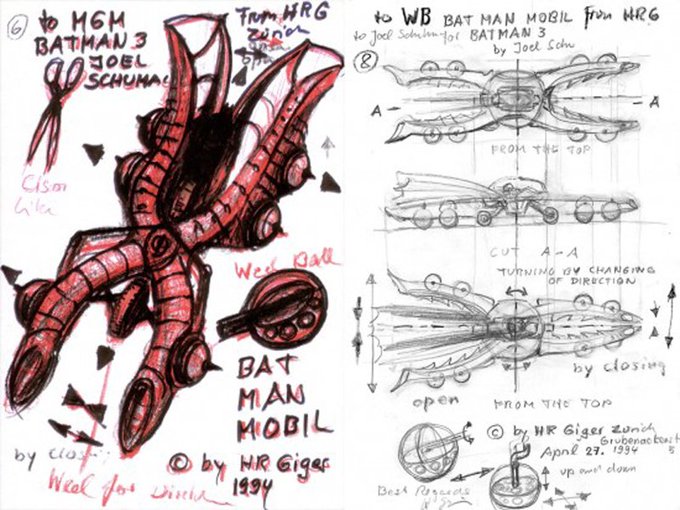 6
to MGM
BATMAN 3
JOEL
SCHUMA
From HRG
Zürich
Weel Ball
BAT
MAN
MOBIL
© by HR Giger
1994
by closing
Weel for
to WB BAT MAN MOBIL From HRG
to Joel Schuhmacher BATMAN 3
by Joel Schu
8
A A
FROM THE TOP
CUT A-A
TURNING BY CHANGING
OF DIRECTION
by closing
open FROM THE TOP
© by HR Giger Zürich
April 27. 1994
up and down
Best Regards